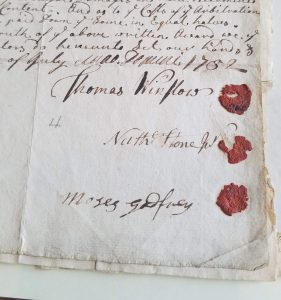 Contents. And as to ye Costs of ye Arbitration
paid Down by Some, in Equal halves.
of ye above written Award we ye
do hereunto Set our hands &
of July Anno Domini 1752
Thomas Winslow
4
Nathl Stone Jr
Moses Godfrey